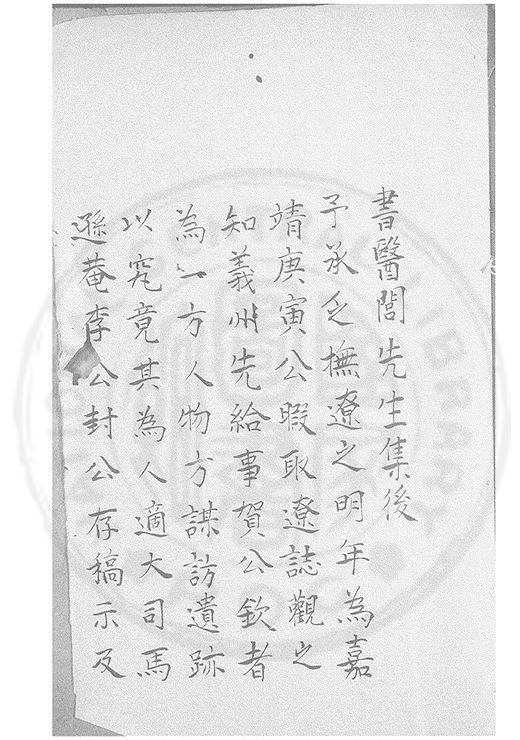 書醫閭先生集後
予承乏撫遼之明年為嘉
靖庚寅公暇取遼誌觀之
知義州先給事賀公欽者
為一方人物方謀訪遺跡
以究竟其為人適大司馬
遜菴李公封公存稿示及